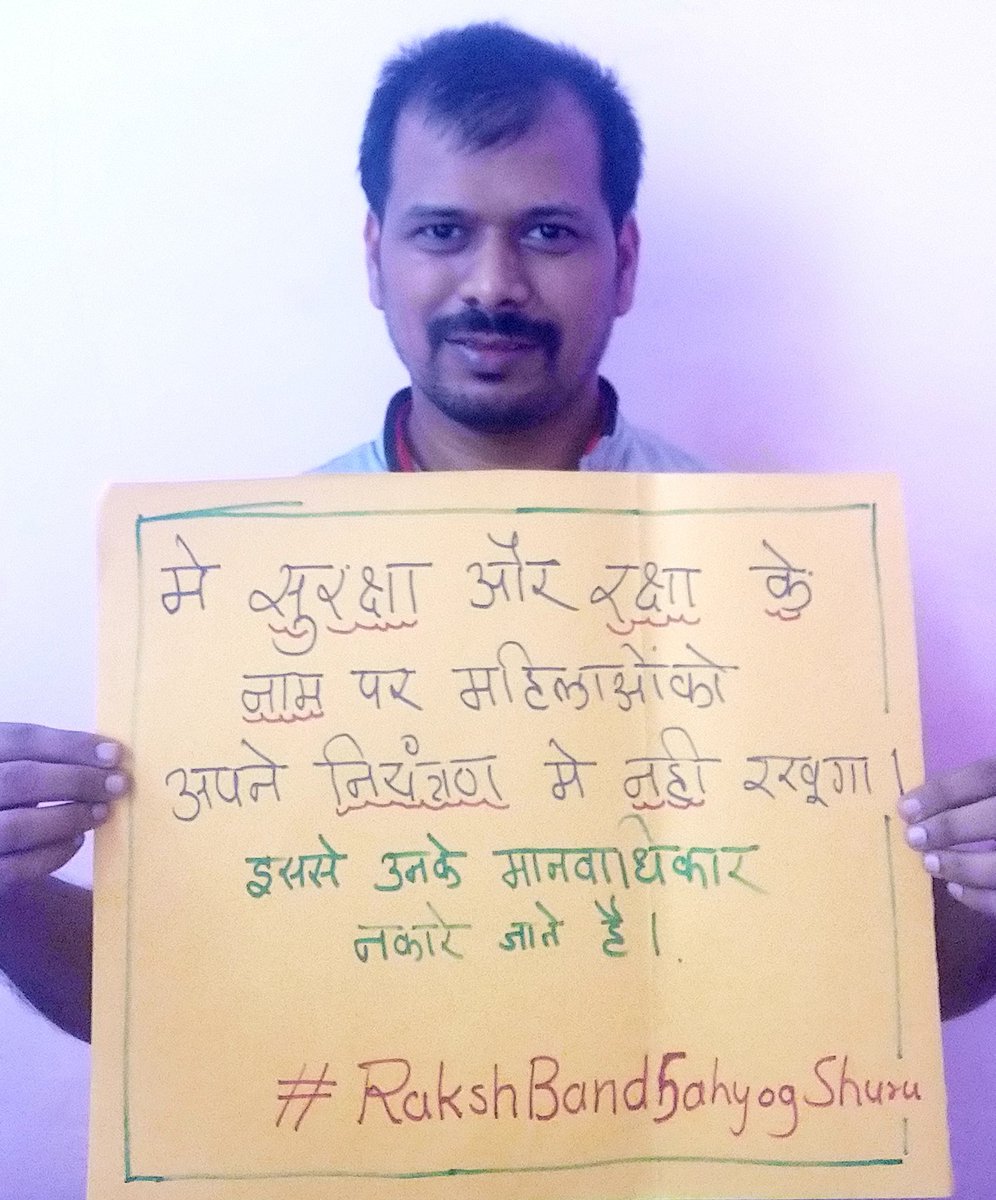 मे सुरक्षा और रक्षा के
नाम पर महिलाओंको
अपने नियंत्रण मे नही रखूगा।
इससे उनके मानवाधिकार
नकारे जाते है।
#RakshBandSahyogShuru